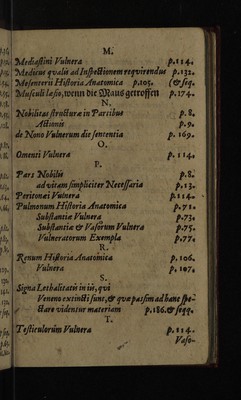 M.
Mediastini Vulnera p.114.
Medicus qvalis ad Inspectionem reqvirendus p.132.
Mesenterii Historia Anatomica p.105. (& seq.
Musculi læsio, wenn die Maus getroffen p.174.
N.
Nobilitas structuræ in Partibus p.8.
Actionis p.9.
de Nono Vulnerum die sententia p.169.
O.
Omenti Vulnera p.114.
P.
Pars Nobilis p.8.
ad vitam simpliciter Necessaria p.13.
Peritonæi Vulnera p.114.
Pulmonum Historia Anatomica p.71.
Substantiæ Vulnera p.73.
Substantiæ & Vasorum Vulnera p.75.
Vulneratorum Exempla p.77.
R.
Renum Historia Anatomica p.106.
Vulnera p.107.
S.
Signa Lethalitatis in iis, qvi
Veneno extincti sunt, & qvæ passim ad hanc spe-
ctare videntur materiam p.186. & seqq.
T.
Testiculorum Vulnera p.114.
Vaso-